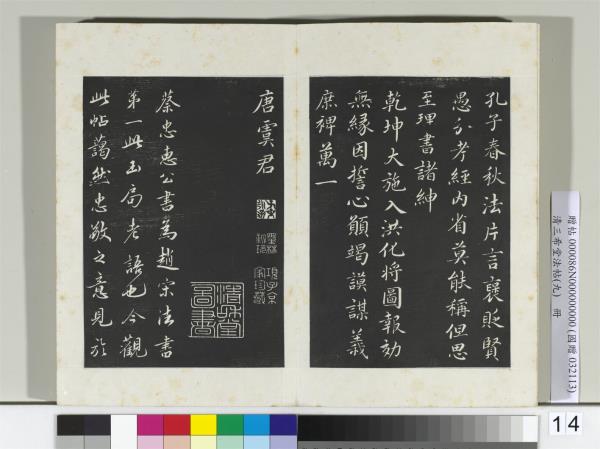 孔子春秋法片言褒貶賢
愚分考經內省莫能稱但思
至理書諸紳
乾坤大施入洪化將圖報効
無緣因誓心願竭謨謀義
庶裨萬一
唐虞君
墨林
項子京
家珍藏
蔡忠惠公書為趙宋法書
第一此玉局老語也今觀
此帖藹然忠敬之意見於
贈帖 000086N000000000 (國贈 032113)
清三希堂法帖(九) 冊
14